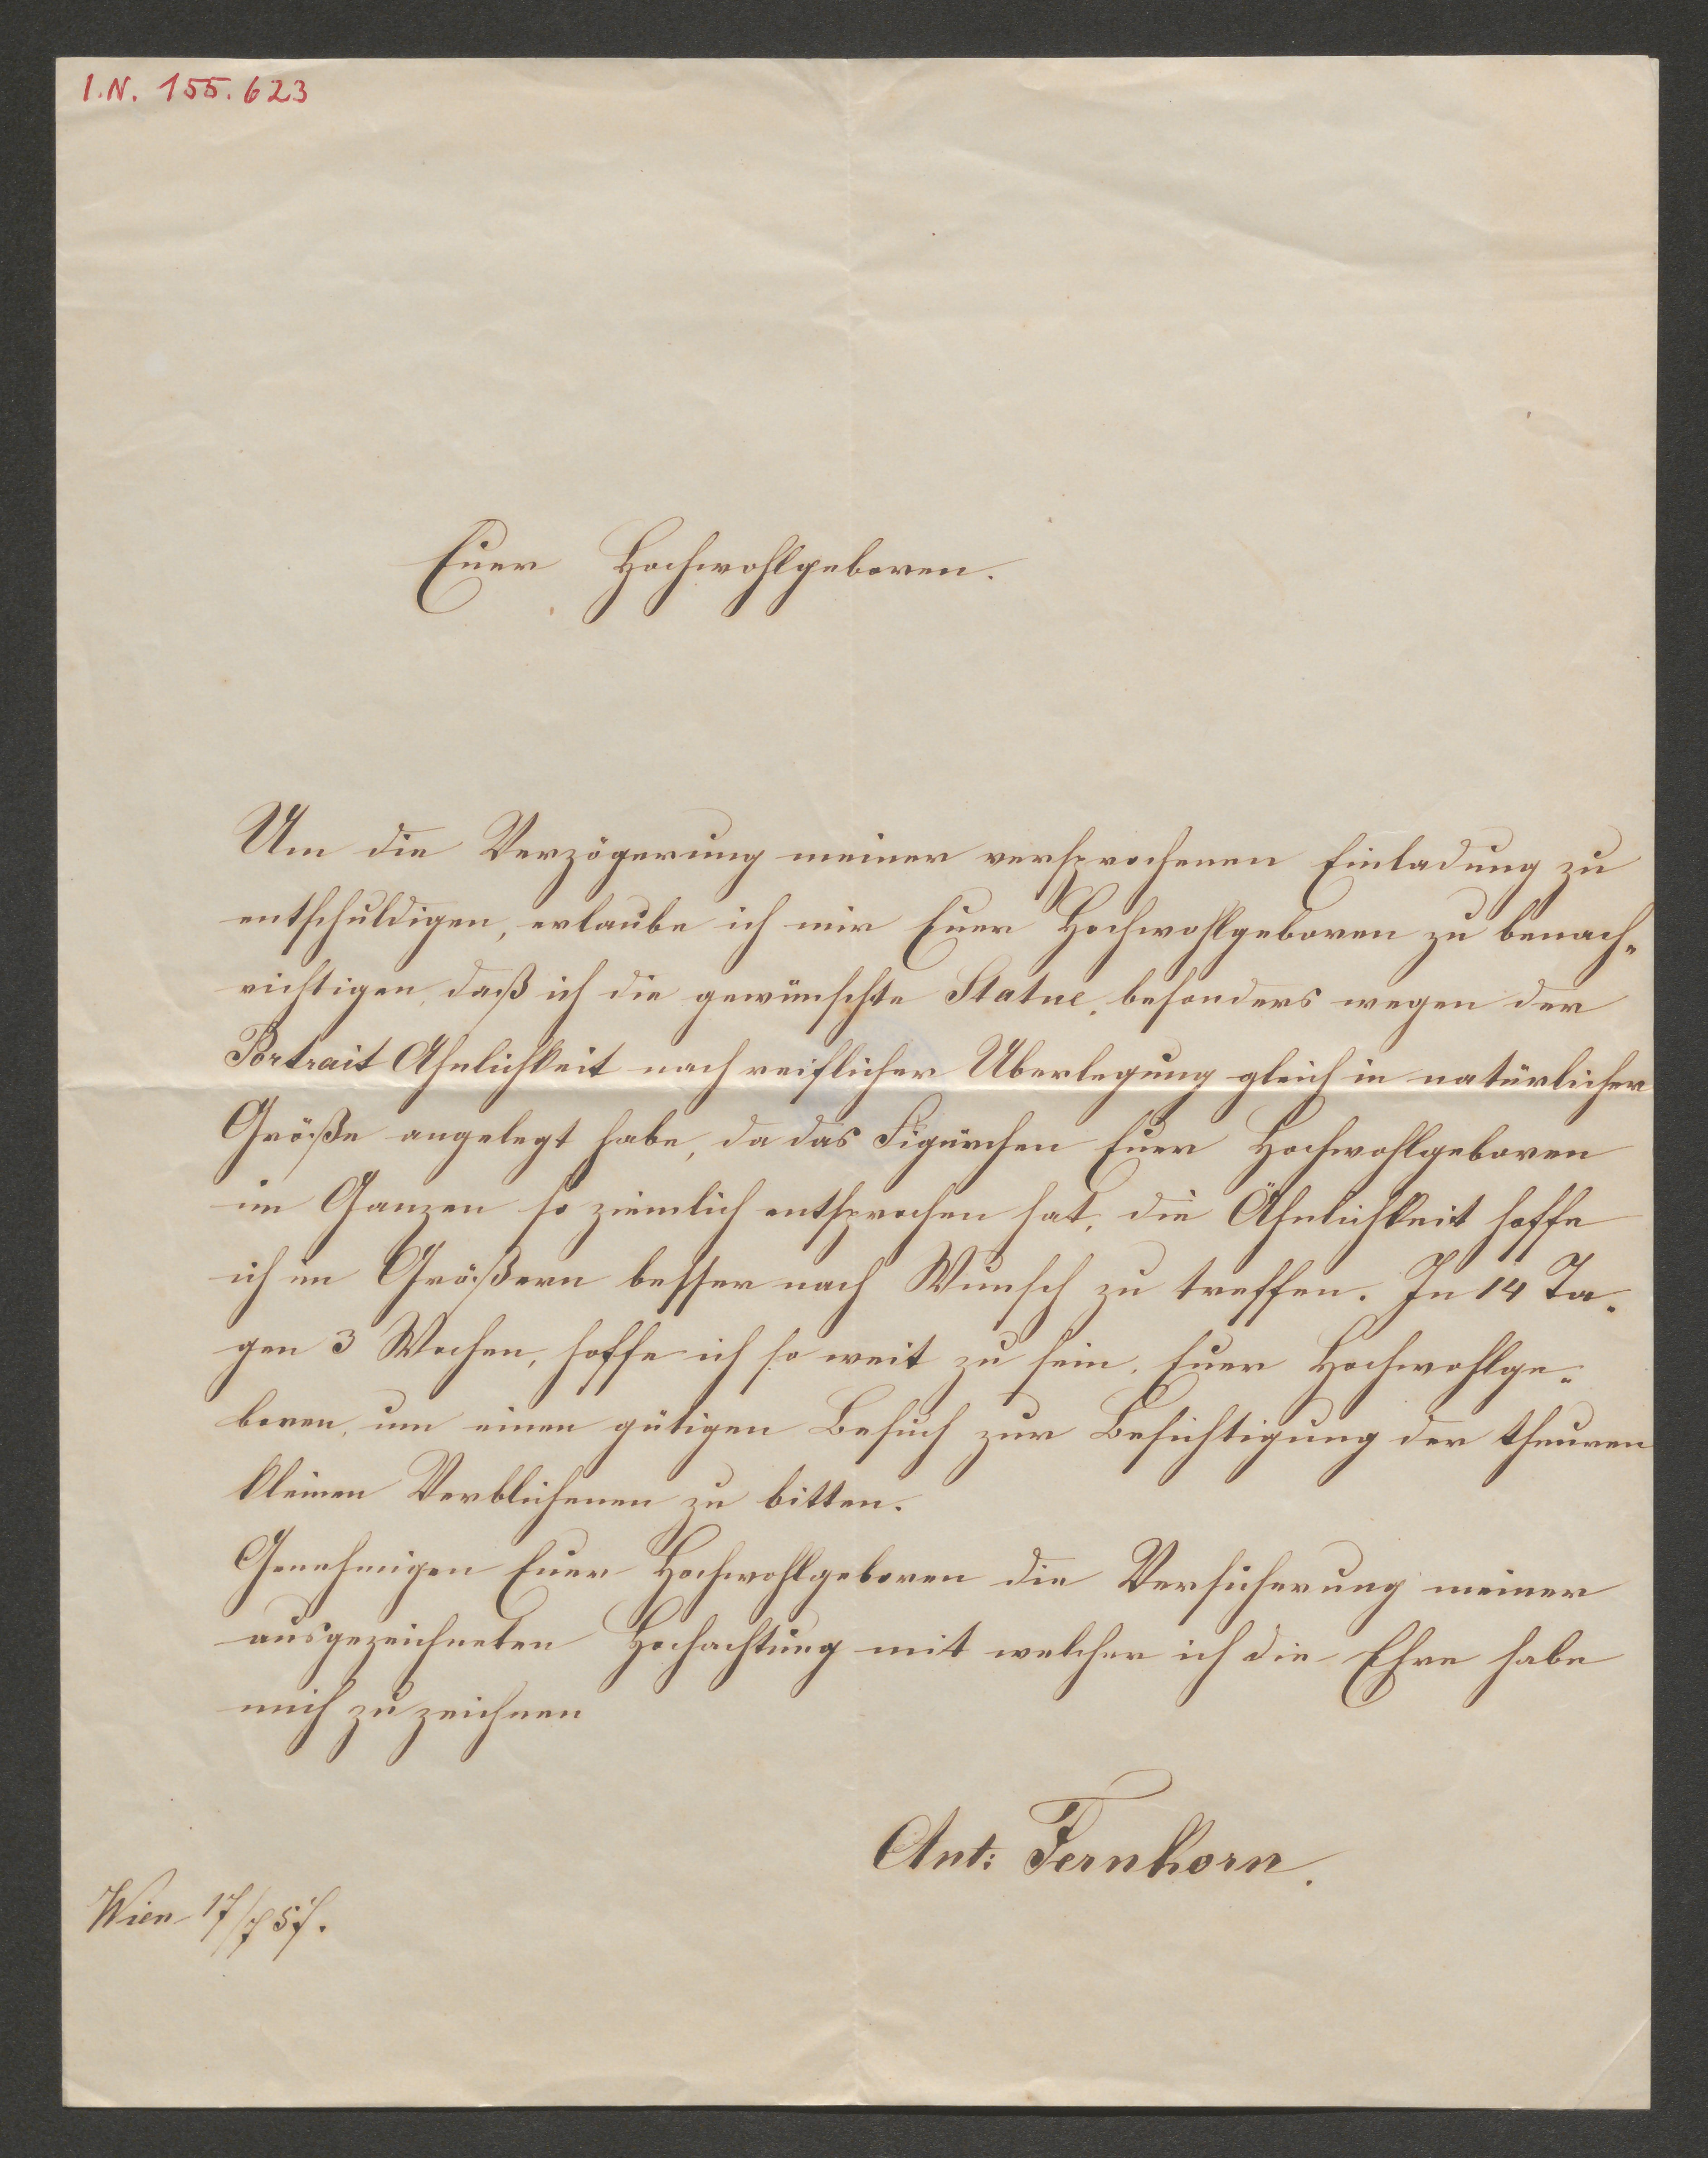 I.N. 155.623
Euer Hochwohlgeboren.
Um die Verzögerung meiner versprochenen Einladung zu
entschuldigen, erlaube ich mir Euer Hochwohlgeboren zu benach„
richtigen, daß ich die gewünschte Statue, besonders wegen der
Portrait Ahnlichkeit nach reiflicher Uberlegung gleich in natürlicher
Größe angelegt habe, da das Figürchen Euer Hochwohlgeboren
im Ganzen so ziemlich entsprochen hat, die Ähnlichkeit hoffe
ich im Größern besser nach Wunsch zu treffen. In 14 Ta„
gen 3 Wochen, hoffe ich so weit zu sein, Euer Hochwohlge„
boren, um einen gütigen Besuch zur Besichtigung der theuren
kleinen Verblichenen zu bitten.
Genehmigen Euer Hochwohlgeboren die Versicherung meiner
ausgezeichneten Hochachtung mit welcher ich die Ehre habe
mich zu zeichnen
Ant: Fernkorn.
Wien 17/7 57.